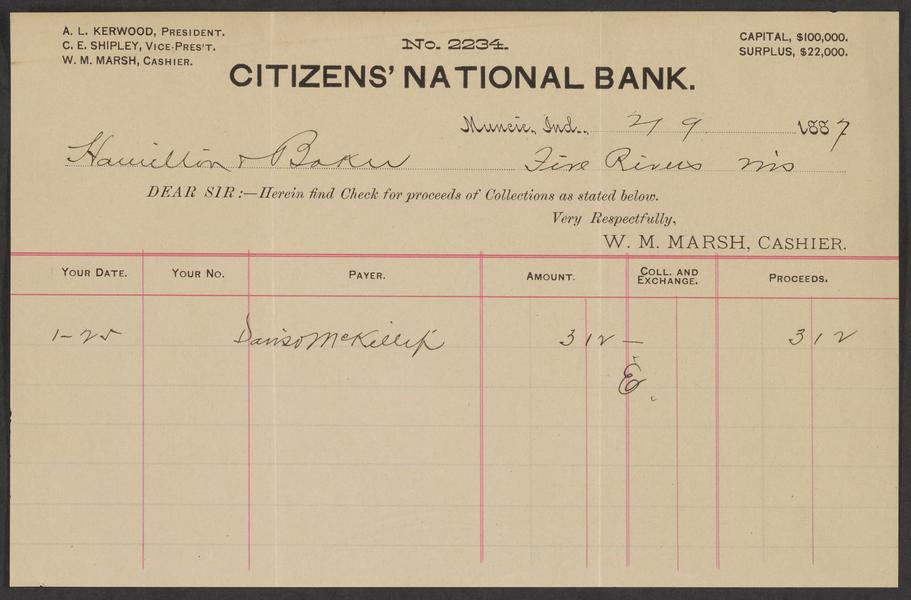 A. L. KERWOOD, PRESIDENT.
C. E. SHIPLEY, VICE-PRES'T.
W. M. MARSH, CASHIER.
No. 2234.
CAPITAL, $100,000.
SURPLUS, $22,000.
CITIZENS' NATIONAL BANK.
Muncie, Ind., 2/9 1887
Hamilton & Baker Five Rivers Mis
DEAR SIR:—Herein find Check for proceeds of Collections as stated below.
Very Respectfully,
W. M. MARSH, CASHIER.
YOUR DATE. YOUR NO. PAYER. AMOUNT. COLL. AND EXCHANGE. PROCEEDS.
1-25 McKillip 3 12 — 3 12
E.